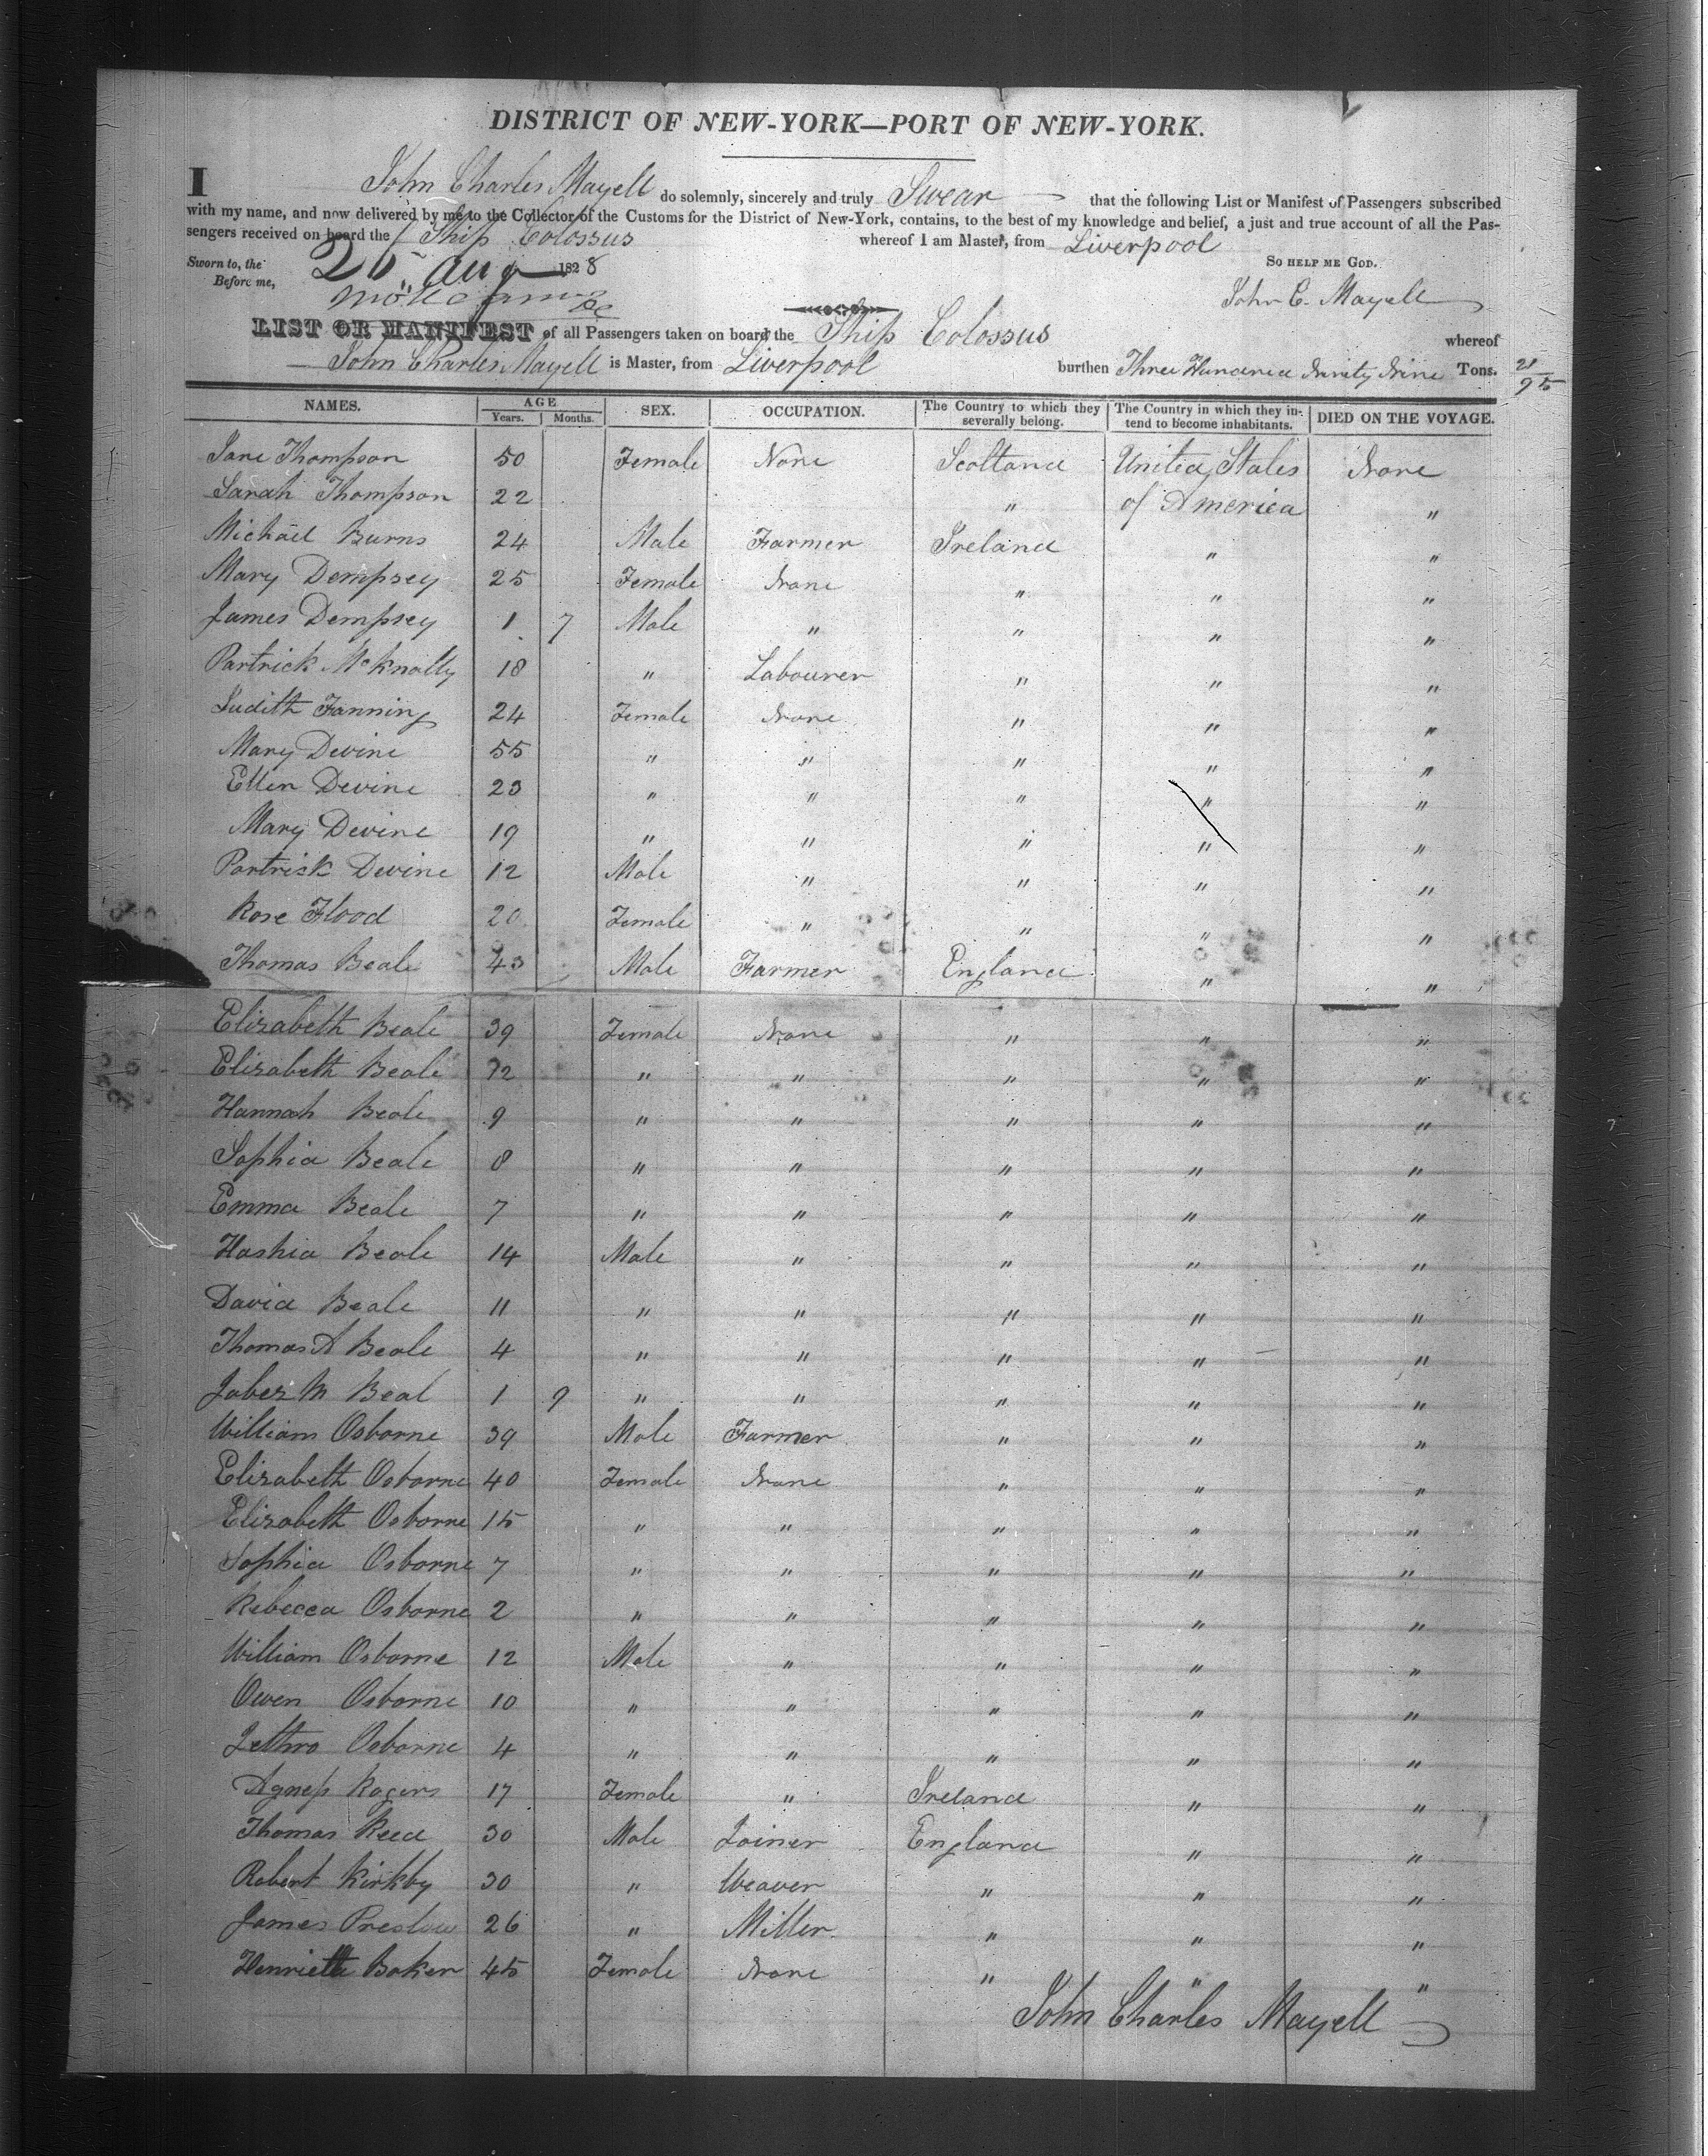 DISTRICT OF NEW-YORK—PORT OF NEW-YORK.
I John Charles Mayell do solemnly, sincerely and truly Swear that the following List or Manifest of Passengers subscribed
with my name, and now delivered by me to the Collector of the Customs for the District of New-York, contains, to the best of my knowledge and belief, a just and true account of all the Pas-
sengers received on board the Ship Colossus whereof I am Master, from Liverpool
Sworn to, the 26 Aug 1828 SO HELP ME GOD.
Before me, John C. Mayell
LIST OR MANIFEST of all Passengers taken on board the Ship Colossus whereof
John Charles Mayell is Master, from Liverpool burthen Three Hundred Ninety Nine Tons. 21/95
NAMES. AGE Years. Months. SEX. OCCUPATION. The Country to which they severally belong. The Country in which they in-tend to become inhabitants. DIED ON THE VOYAGE.
Jane Thompson 50 Female None Scotland United States None
Sarah Thompson 22 " of America "
Michael Burns 24 Male Farmer Ireland " "
Mary Dempsey 25 Female None " " "
James Dempsey 1 7 Male " " " "
Partrick McKnally 18 " Labourer " " "
Judith Fanning 24 Female None " " "
Mary Devine 55 " " " " "
Ellen Devine 23 " " " " "
Mary Devine 19 " " " " "
Partrick Devine 12 Male " " " "
Rose Flood 20 Female " " " "
Thomas Beale 43 Male Farmer England " "
Elizabeth Beale 39 Female None " " "
Elizabeth Beale 12 " " " " "
Hannah Beale 9 " " " " "
Sophia Beale 8 " " " " "
Emma Beale 7 " " " " "
Hashia Beale 14 Male " " " "
David Beale 11 " " " " "
Thomas A Beale 4 " " " " "
Jabez M Beal 1 9 " " " " "
William Osborne 39 Male Farmer " " "
Elizabeth Osborne 40 Female None " " "
Elizabeth Osborne 15 " " " " "
Sophia Osborne 7 " " " " "
Rebecca Osborne 2 " " " " "
William Osborne 12 Male " " " "
Owen Osborne 10 " " " " "
Jethro Osborne 4 " " " " "
Agness Rogers 17 Female " Ireland " "
Thomas Reed 30 Male Joiner England " "
Robert Kirkby 30 " Weaver " " "
James Preslow 26 " Miller " " "
Henrietta Baker 45 Female None " " "
John Charles Mayell